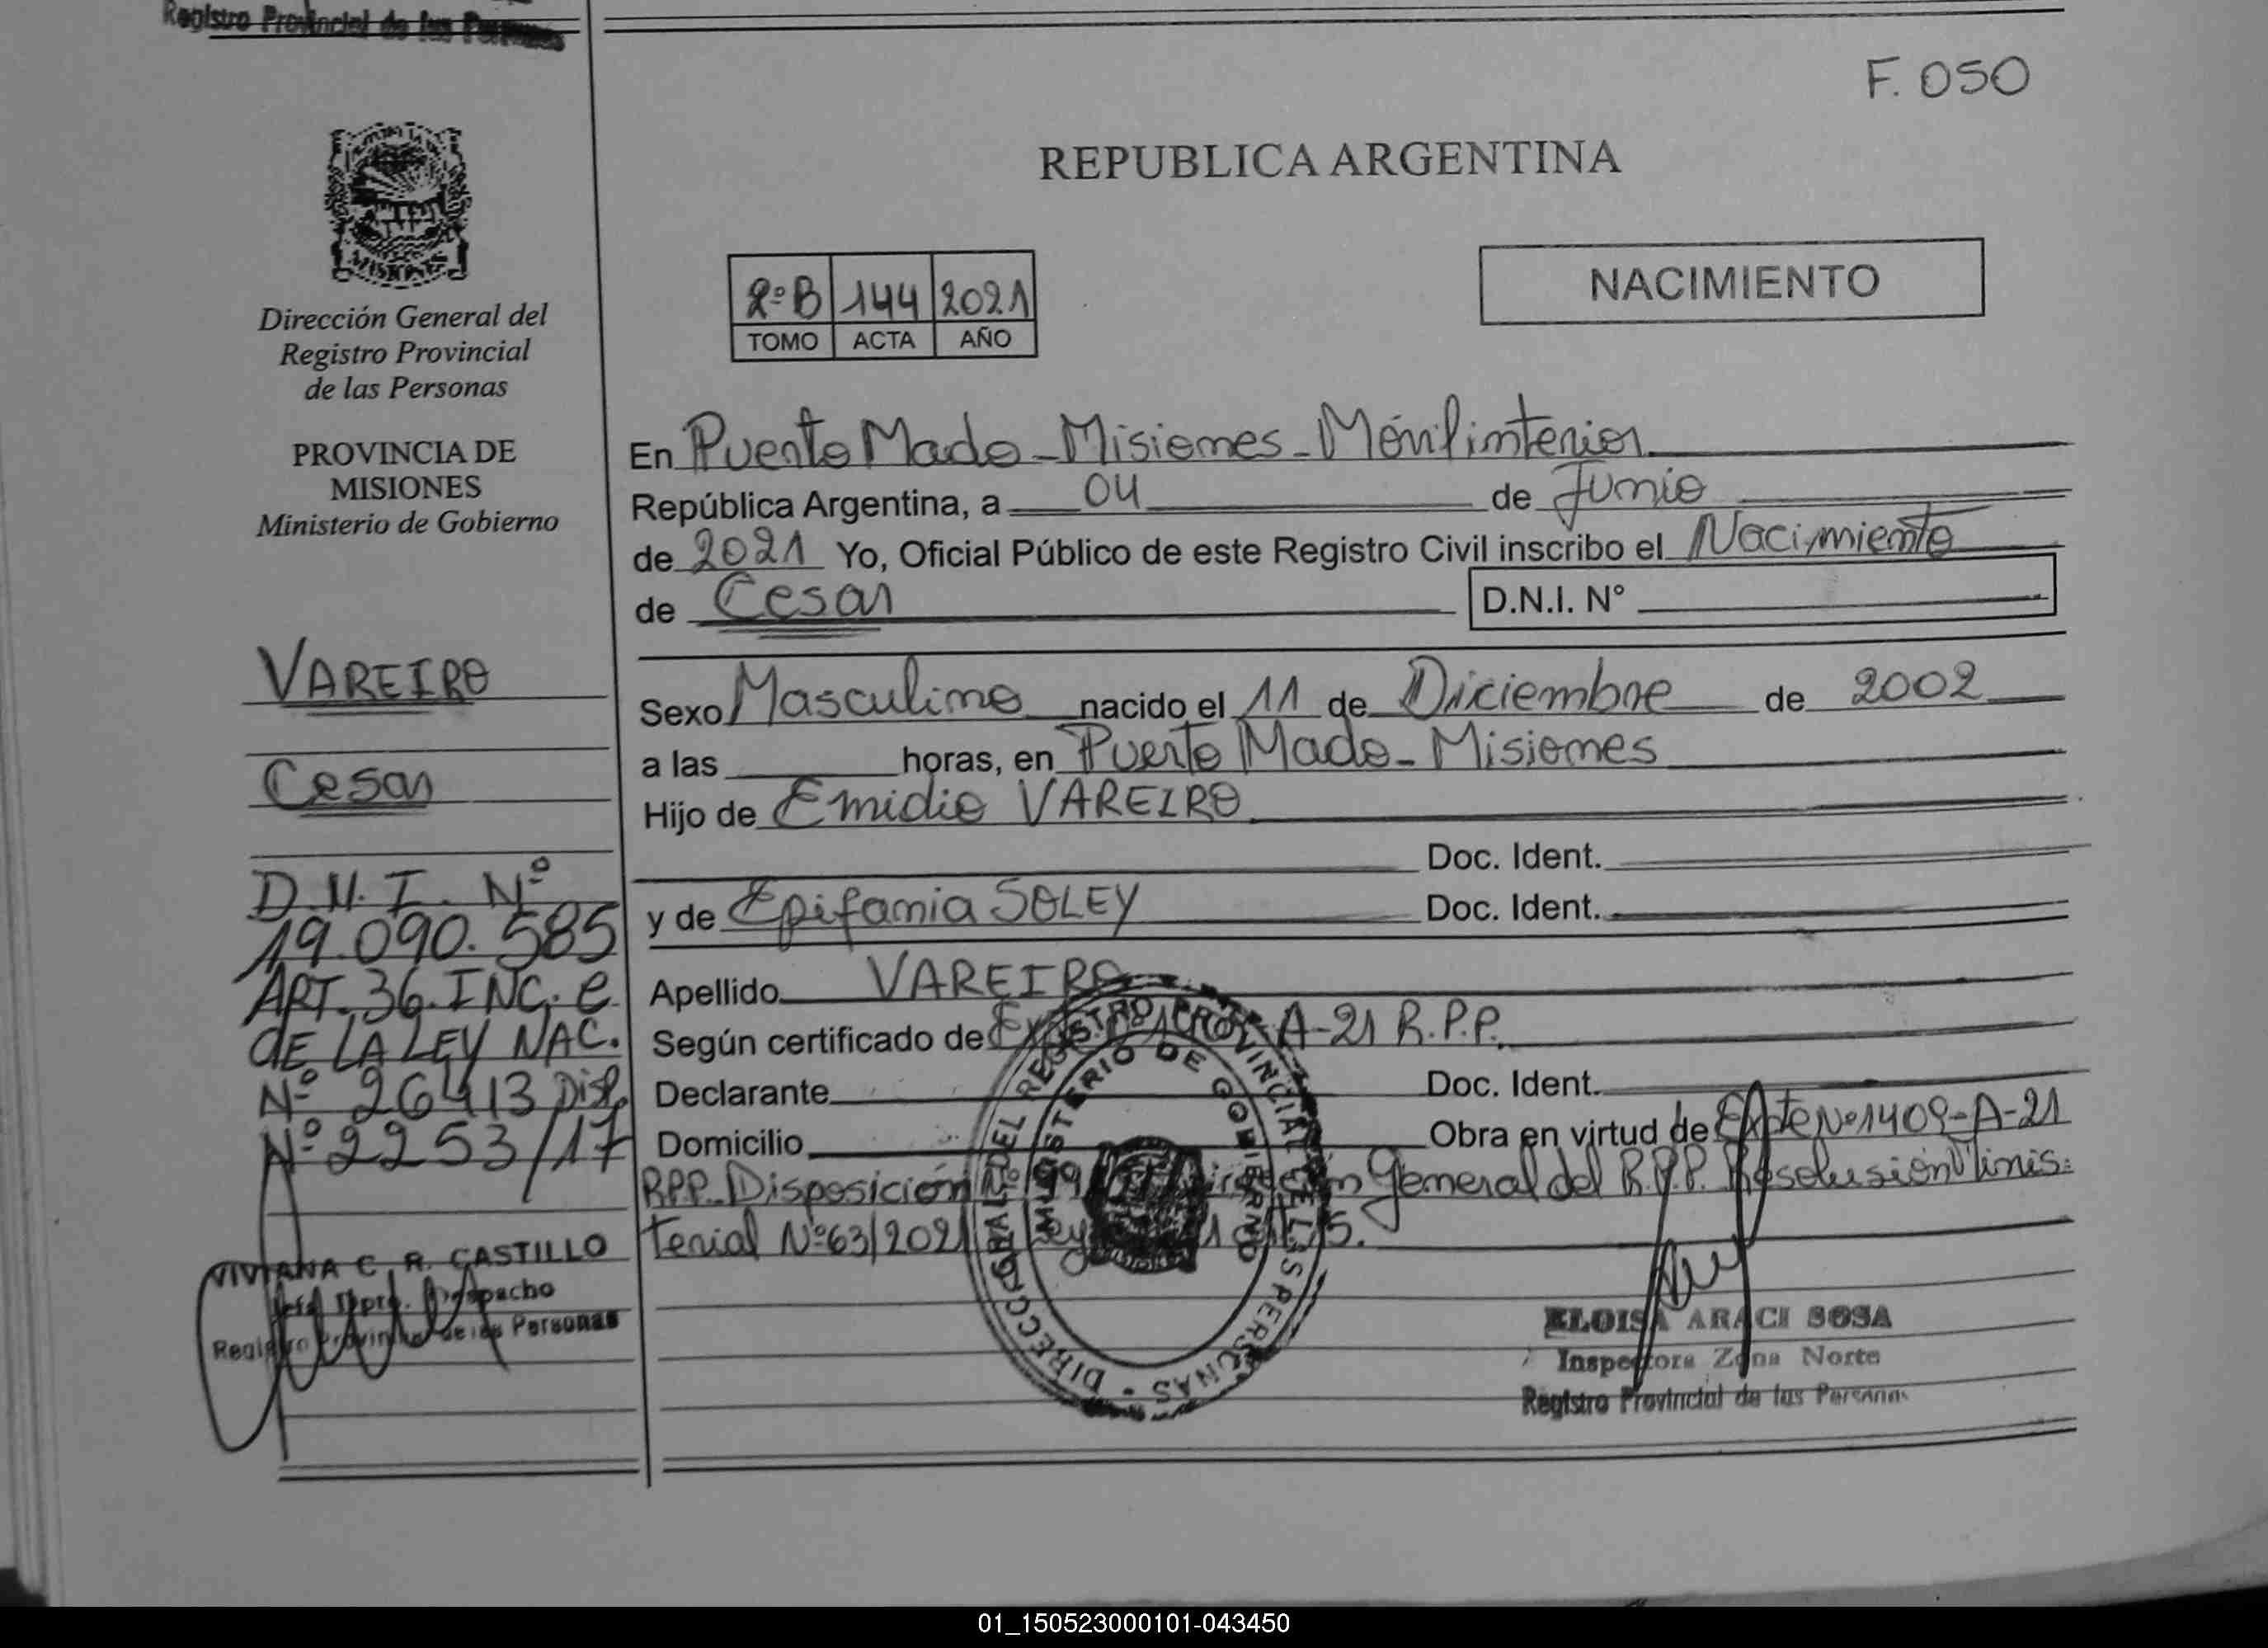 Registro Provincial de las Personas
F. 050
REPUBLICA ARGENTINA
MISIONES
Dirección General del
Registro Provincial
de las Personas
PROVINCIA DE
MISIONES
Ministerio de Gobierno
2º B 144 2021
TOMO ACTA AÑO
NACIMIENTO
En Puerto Mado - Misiones - Móvil interior
República Argentina, a 04 de Junio
de 2021 Yo, Oficial Público de este Registro Civil inscribo el Nacimiento
de Cesar D.N.I. N°
Sexo Masculino nacido el 11 de Diciembre de 2002
a las horas, en Puerto Mado - Misiones
Hijo de Emidio VAREIRO
Doc. Ident.
y de Epifania SOLEY Doc. Ident.
Apellido VAREIRO
Según certificado de A-21 R.P.P.
Declarante Doc. Ident.
Domicilio Obra en virtud de Expte Nº 1409-A-21
RPP. Disposición General del R.P.P. Resolusión Minis=
terial Nº 63/2021
VAREIRO
Cesar
D.N.I. Nº
19.090.585
ART. 36. INC. e
DE LA LEY NAC.
Nº 26413 Disp.
Nº 2253/17
VIVIANA C. R. CASTILLO
Jefa Dpto. Despacho
Registro Provincial de las Personas
DIRECCION GRAL. DEL REGISTRO PROVINCIAL DE LAS PERSONAS
MINISTERIO DE GOBIERNO
ELOISA ARACI SOSA
Inspectora Zona Norte
Registro Provincial de las Personas
01_150523000101-043450